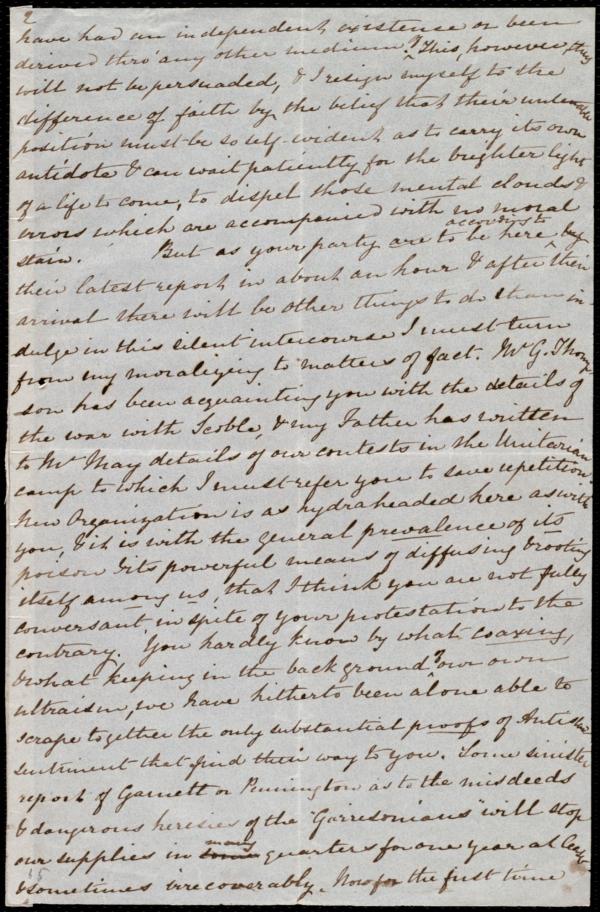 2
have had an independent existense or been
derived thro' any other medium? This, however, they
will not be persuaded, & I resign myself to the
difference of faith by the belief that their untenable
position must be so self-evident as to carry its own
antidote & can wait patiently for the brighter light
of a life to come, to dispel those mental clouds &
errors which are accompanied with no moral
stain. But as your party are to be here according to by
their latest report in about an hour & after their
arrival there will be other things to do than in-
dulge in this silent intercourse I must turn
from my moralizing to matters of fact. Mr G. Thomp-
son has been acquainting you with the details of
the war with Scoble, & my Father has written
to Mr May details of our contests in the Unitarian
camp to which I must refer you to save repetition.
New Organization is as hydraheaded here as with
you, & it is with the general prevalence of its
poison & its powerful means of diffusing & rooting
itself among us, that I think you are not fully
conversant in spite of your protestation to the
contrary. You hardly know by what coaxing,
& what keeping in the back ground of our own
ultraism, we have hitherto been alone able to
scrape together the only substantial proofs of Anti-slav
sentiment that find their way to you. Some sinister
report of Garnett or Pennington as to the misdeeds
& dangerous heresies of the "Garrisonians" will stop
our supplies in some many quarters for one year at least
& sometimes irrecoverably. Now for the first time